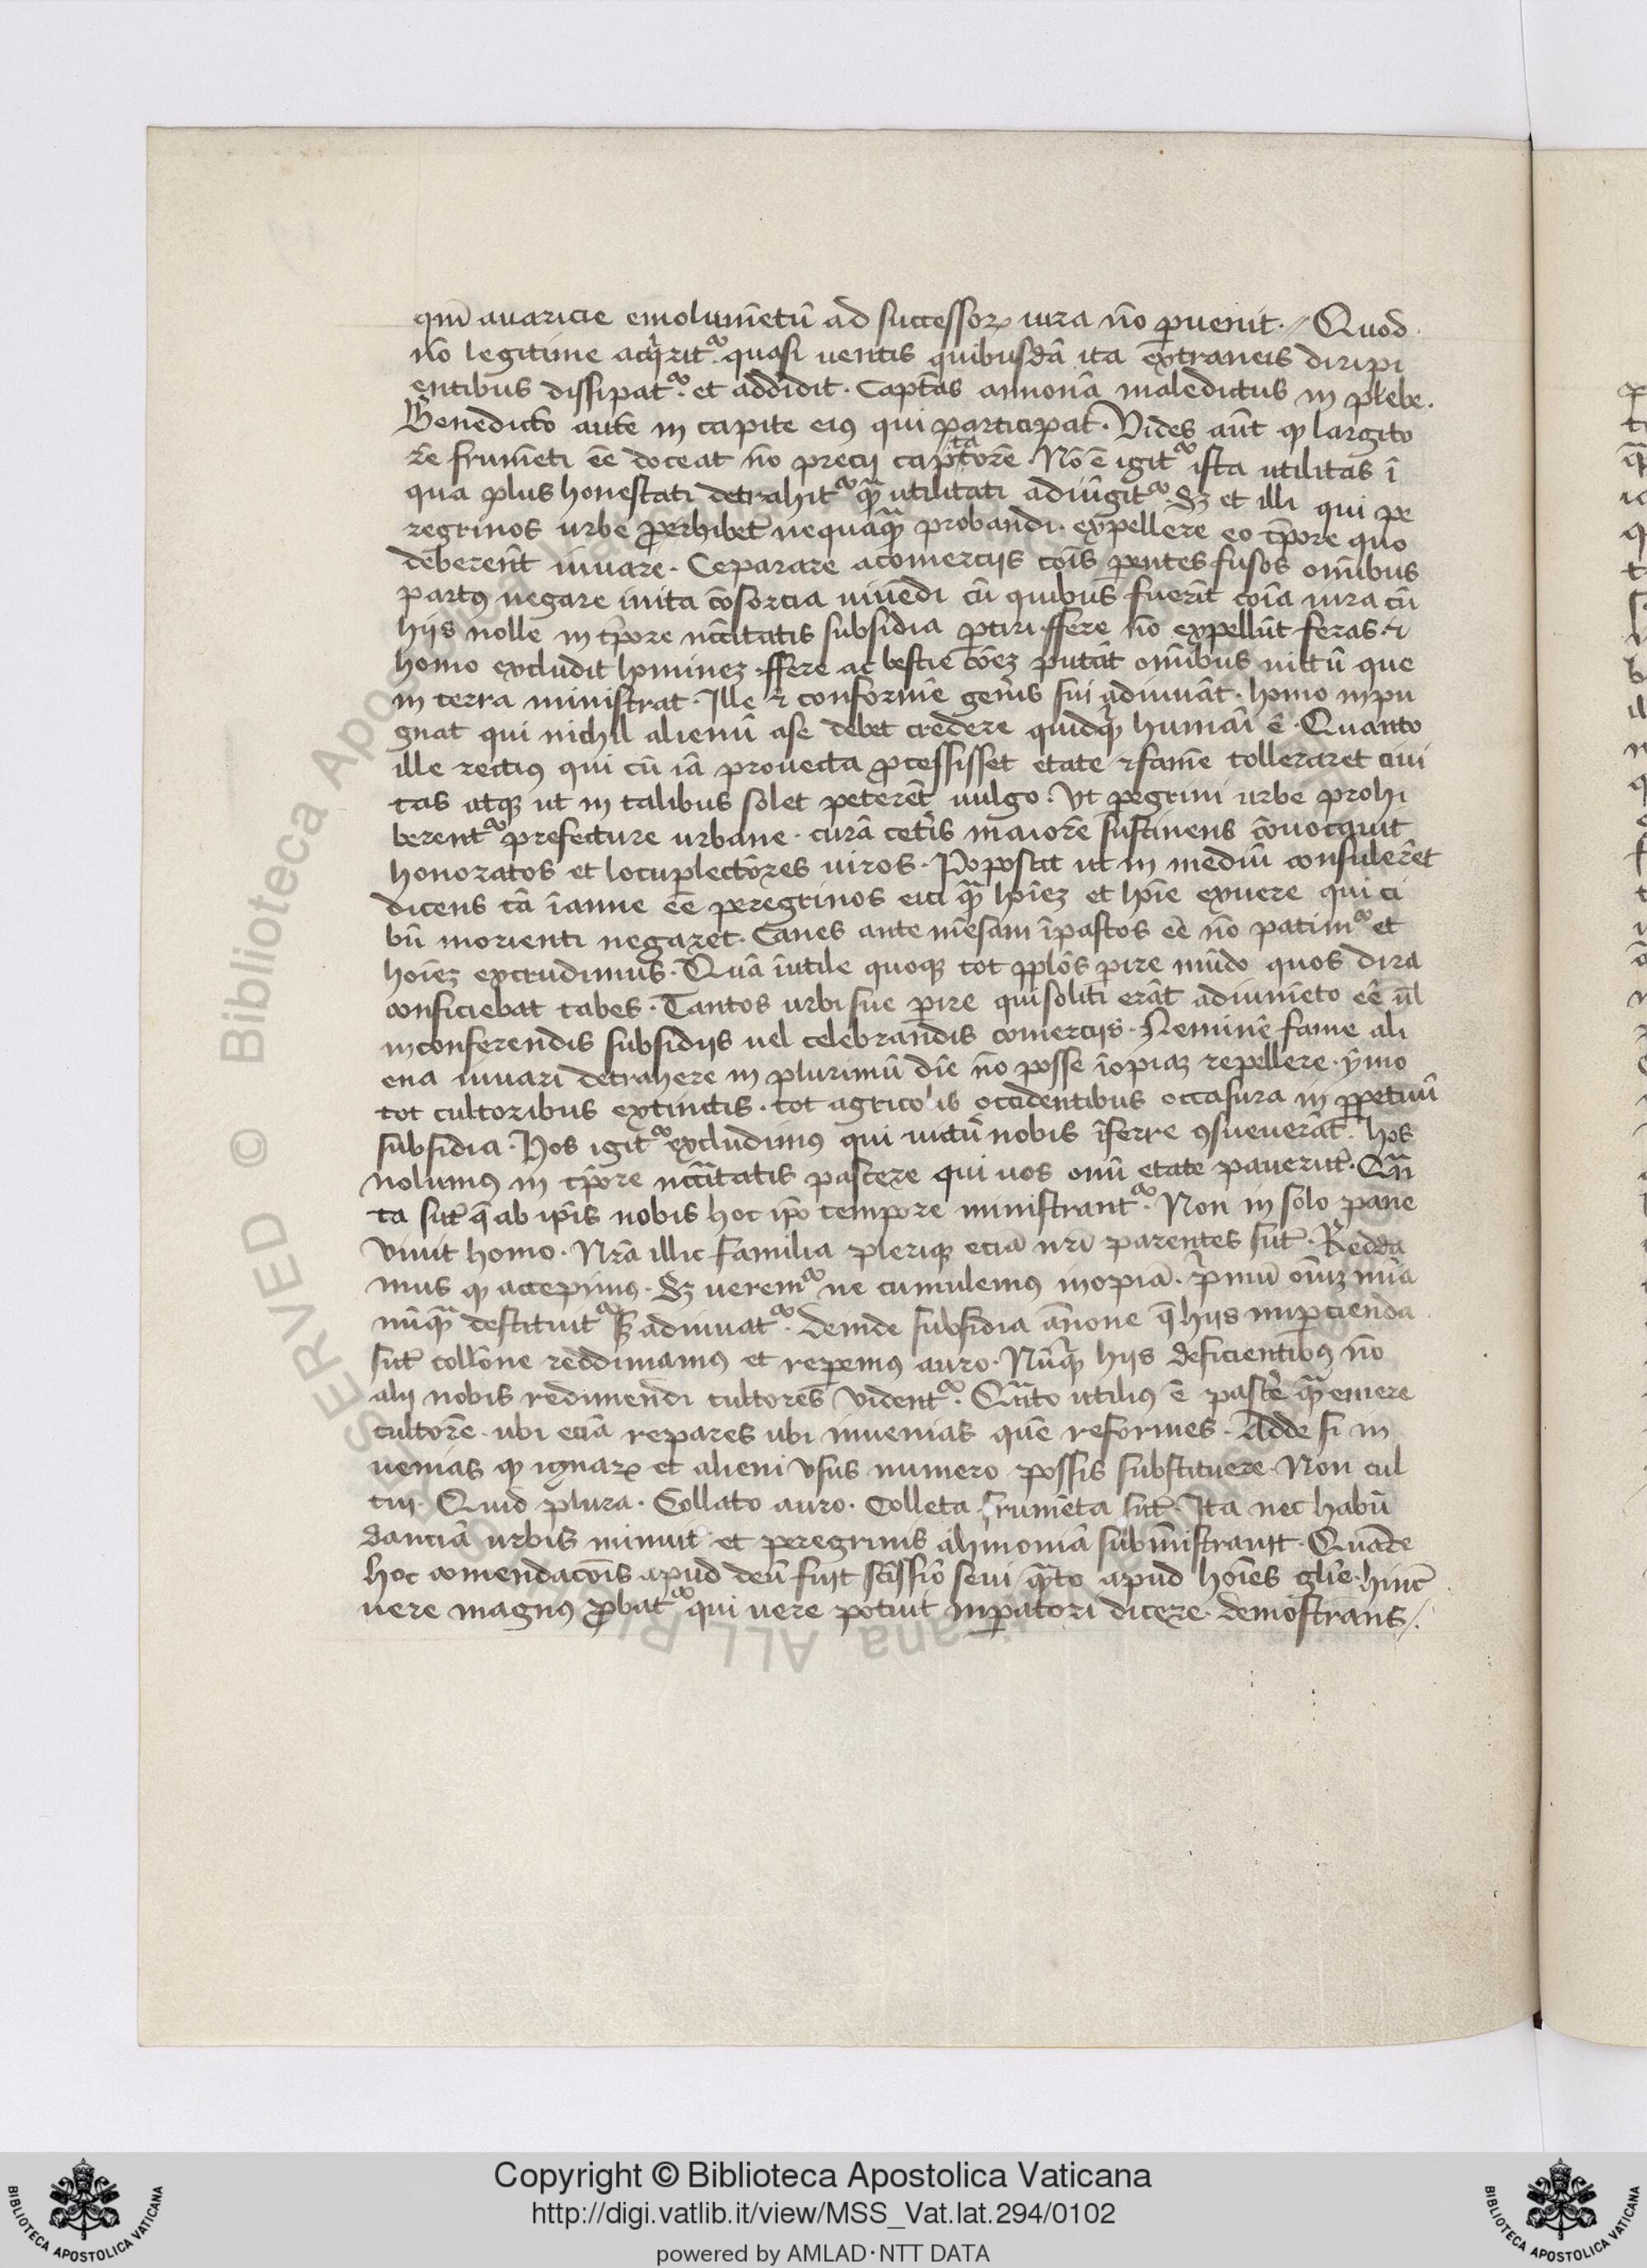 qm̄ auaricie emolumētū ad successoꝝ iura nō ꝑuenit. // Quod
nō legitime acq̇rit᷑. quasi uentis quibusdā ita extraneis diripi
entibus dissipat᷑. et addidit. Captās annonā maledictus in plebe.
Benedictō autē in capite eiꝰ qui participat. Vides aūt ꝙ largito
rē frumēti eē doceat nō precij captatorē. Nō ē igit᷑ ista utilitas ī
qua plus honestati detrahit᷑ qᷓ utilitati adiūgit᷑. Sꝫ et illi qui pe
regrinos urbe ꝓhibēt nequāqᷓ probandi. expellere eo tp̄ore quo
deberēt iuuare. Ceparare a comercijs cōis ꝑentes fusos om̄ibus
partꝰ negare inita cōsortia uiuēdi cū quibus fuerīt cōia iura cū
hijs nolle in tp̄ore nccītatis subsidia ꝑtiri. ffere nō expellūt feras. ⁊
homo excludit hominez. ffere ac bestie cōez putāt om̄ibus uictū que
in terra ministrat. Ille ⁊ conformē gen̄is sui adiuuāt. homo inpu
gnat qui nichil alienū a se debet credere quidqᷓ humāi ē. Quanto
ille rectiꝰ qui cū iā prouecta ꝓcessisset etate ⁊ famē tolleraret ciui
tas atqꝫ ut in talibus solet peterēt uulgo. Vt ꝑegrini urbe prohi
berent᷑ prefecture urbane. curā cet̄is maiorē sustinens cōuocauit
honoratos et locupletiores uiros. Poposcit ut in mediū consulerēt
dicens tā īanne eē peregrinos eici qᷓ hoīez et hoīe exuere qui ci
bū morienti negaret. Canes ante mēsam īpastos eē nō patim᷑ et
hoīez extrudimus. Quā īutile quoqꝫ tot pplōs ꝑire mūdo quos dira
conficiebat tabes. Tantos urbi sue ꝑire qui soliti erāt adiumēto eē ul̄
in conferendis subsidijs uel celebrandis comercijs. Neminē fame ali
ena iuuari detrahere in plurimū diē nō posse īopiaꝫ repellere. ẏmo
tot cultoribus extinctis. tot agricolis occidentibus occasura in ꝑpetuū
subsidia. Hos igit᷑ excludimꝰ qui uictū nobis īferre ꝯsueuerāt. hos
nolumꝰ in tp̄ore nccītatis pascere qui uos om̄i etate pauerūt. Quā
ta sūt q̄ ab ip̄is nobis hoc ip̄o tempore ministrant᷑. Non in solo pane
viuit homo. Nr̄a illic familia pleriqꝫ eciā nr̄i parentes sūt. Redda
mus ꝙ accepimꝰ. Sꝫ uerem᷑ ne cumulemꝰ inopiā. p̄mū oīuꝫ mīa
nūqᷓ destituit᷑ sꝫ adiuuat᷑. deinde subsidia ānone q̄ hijs inꝑcienda
sūt collōne reddimamꝰ et reꝑemꝰ auro. Nūqᷓ hijs deficientibꝰ nō
alij nobis redimendi cultores vident᷑. Quāto utiliꝰ ē pascē qᷓ emere
cultorē. ubi eciā repares ubi inuenias quē reformes. Adde si in
uenias ꝙ ignaꝝ et alieni vsus numero possis substituere. Non cul
tui. Quid plura. Collato auro. Colleta frumēta sūt. Ita nec habū
danciā urbis minuit et peregrinis alimoniā subministrauit. Quāte
hoc comendacōis apud deū fuit sctīssiō seni quāto apud hoīes glīe. hinc
uere magnꝰ ꝓbat᷑ qui uere potuit inꝑatori dicere. demostrans //.
Copyright © Biblioteca Apostolica Vaticana
http://digi.vatlib.it/view/MSS_Vat.lat.294/0102
powered by AMLAD·NTT DATA
BIBLIOTECA APOSTOLICA VATICANA
BIBLIOTECA APOSTOLICA VATICANA